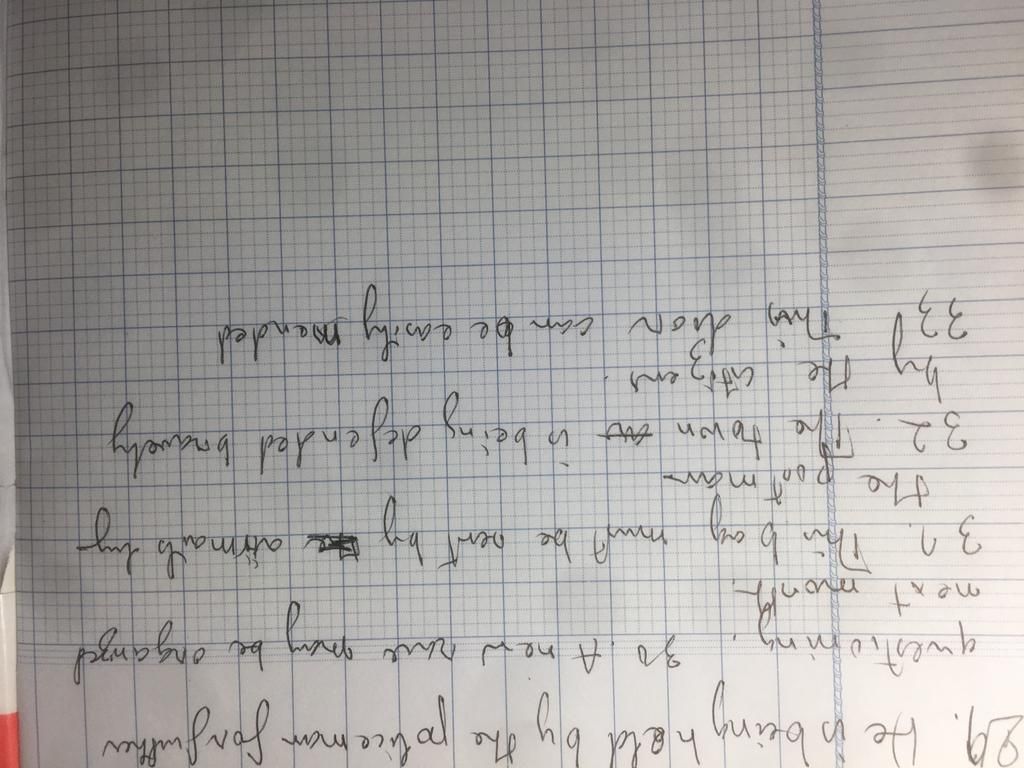 29. He is being held by the policeman for further
questioning. 30. A new race may be organized
next month.
31. This bag must be sent by airmails by
the postman
32. The town is being defended bravely
by the citizens.
33 This door can be easily mended